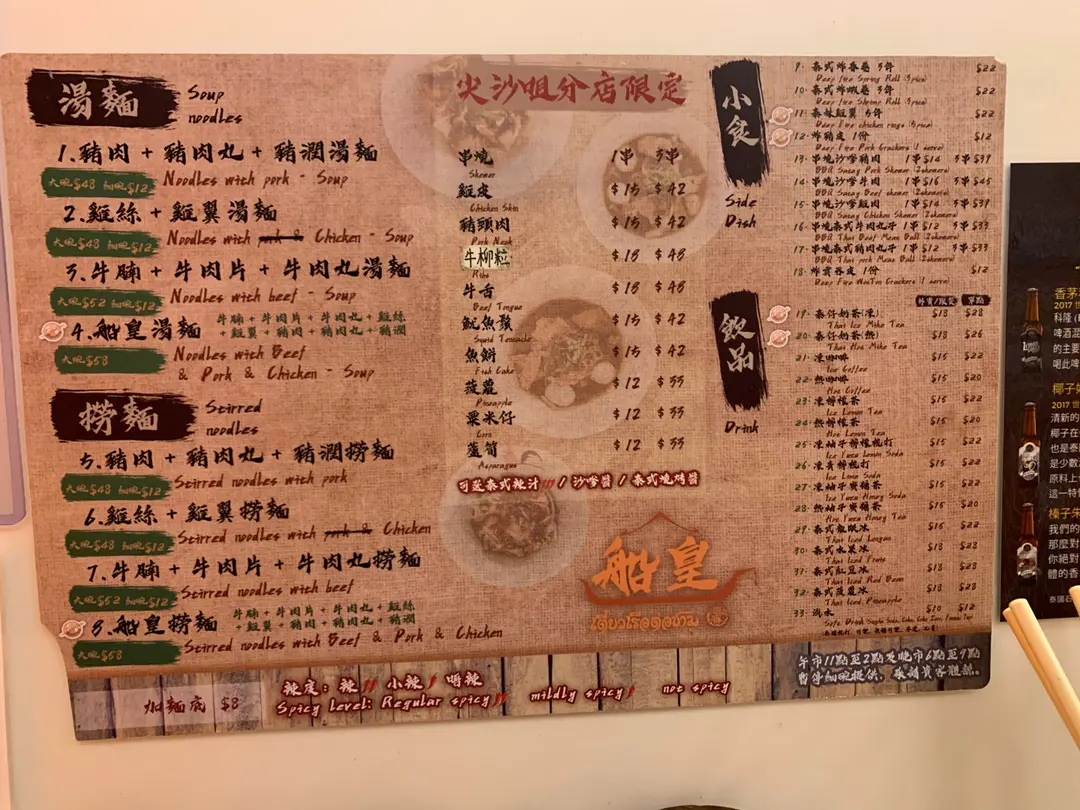 湯麵 Soup noodles
1.豬肉 + 豬肉丸 + 豬潤湯麵
大碗$48 細碗$12 Noodles with pork - Soup
2.雞絲 + 雞翼湯麵
大碗$48 細碗$12 Noodles with pork & Chicken - Soup
3.牛腩 + 牛肉片 + 牛肉丸湯麵
大碗$52 細碗$12 Noodles with beef - Soup
4.船皇湯麵 牛腩 + 牛肉片 + 牛肉丸 + 雞絲
+ 雞翼 + 豬肉 + 豬肉丸 + 豬潤
大碗$58 Noodles with Beef
& Pork & Chicken - Soup
撈麵 Stirred noodles
5.豬肉 + 豬肉丸 + 豬潤撈麵
大碗$48 細碗$12 Stirred noodles with pork
6.雞絲 + 雞翼撈麵
大碗$48 細碗$12 Stirred noodles with pork & Chicken
7.牛腩 + 牛肉片 + 牛肉丸撈麵
大碗$52 細碗$12 Stirred noodles with beef
8.船皇撈麵 牛腩 + 牛肉片 + 牛肉丸 + 雞絲
+ 雞翼 + 豬肉 + 豬肉丸 + 豬潤
大碗$58 Stirred noodles with Beef & Pork & Chicken
加麵底 $8
辣度: 辣 小辣 唔辣
Spicy Level: Regular spicy mildly spicy not spicy
尖沙咀分店限定
串燒 1串 3串
Skewer
雞皮 $15 $42
Chicken Skin
豬頭肉 $15 $42
Pork Neck
牛柳粒 $18 $48
Ribs
牛舌 $18 $48
Beef Tongue
魷魚鬚 $15 $42
Squid Tentacle
魚餅 $15 $42
Fish Cake
菠蘿 $12 $33
Pineapple
粟米仔 $12 $33
Corn
蘆筍 $12 $33
Asparagus
可選泰式辣汁 / 沙嗲醬 / 泰式燒烤醬
船皇
小食
Side Dish
9. 泰式炸春卷 5件 $22
Deep fire Spring Roll (5pics)
10. 泰式炸蝦卷 5件 $22
Deep fire Shrimp Roll (5pics)
11. 泰妹雞翼 5件 $22
Deep Fire chicken rings (5pics)
12. 炸豬皮 1份 $12
Deep Fire Pork Crackers (1 serve)
13. 串燒沙嗲豬肉 1串$14 3串$39
BBQ Satay Pork Skewer
14. 串燒沙嗲牛肉 1串$16 3串$45
BBQ Satay Beef skewer
15. 串燒沙嗲雞肉 1串$14 3串$39
BBQ Satay Chicken Skewer
16. 串燒泰式牛肉丸子 1串$12 3串$33
BBQ Thai Beef Meat Ball
17. 串燒泰式豬肉丸子 1串$12 3串$33
BBQ Thai pork Meat Ball
18. 炸雲吞皮 1份 $12
Deep Fire WonTon Crackers (1 serve)
飲品
Drink
外賣/跟餐 單點
19. 泰仔奶茶(凍) $18 $28
Thai Ice Milk Tea
20. 泰仔奶茶(熱) $18 $26
Thai Hot Milk Tea
21. 凍咖啡 $15 $22
Ice Coffee
22. 熱咖啡 $15 $20
Hot Coffee
23. 凍檸檬茶 $15 $22
Ice Lemon Tea
24. 熱檸檬茶 $15 $20
Hot Lemon Tea
25. 凍柚子檸檬梳打 $15 $22
Ice Yuzu Lemon Soda
26. 凍青檸梳打 $15 $22
Ice Lime Soda
27. 凍柚子蜜糖茶 $15 $22
Ice Yuzu Honey Tea
28. 熱柚子蜜糖茶 $15 $20
Hot Yuzu Honey Tea
29. 泰式龍眼冰 $15 $22
Thai Iced Longan
30. 泰式木菓冰 $18 $28
Thai Iced Fruit
31. 泰式紅豆冰 $18 $28
Thai Iced Red Bean
32. 泰式菠蘿冰 $18 $28
Thai Iced Pineapple
33. 汽水 $10 $12
午市11點至2點及晚市6點至9點
暫停細碗提供, 敬請貴客見諒。
香茅
2017 世
啤酒
的主要
喝此啤
椰子
2017 世
清新的
椰子在
也是泰
是少數
原料上
這一特
榛子朱
我們的
那麼對
你絕對
體的香
泰國石